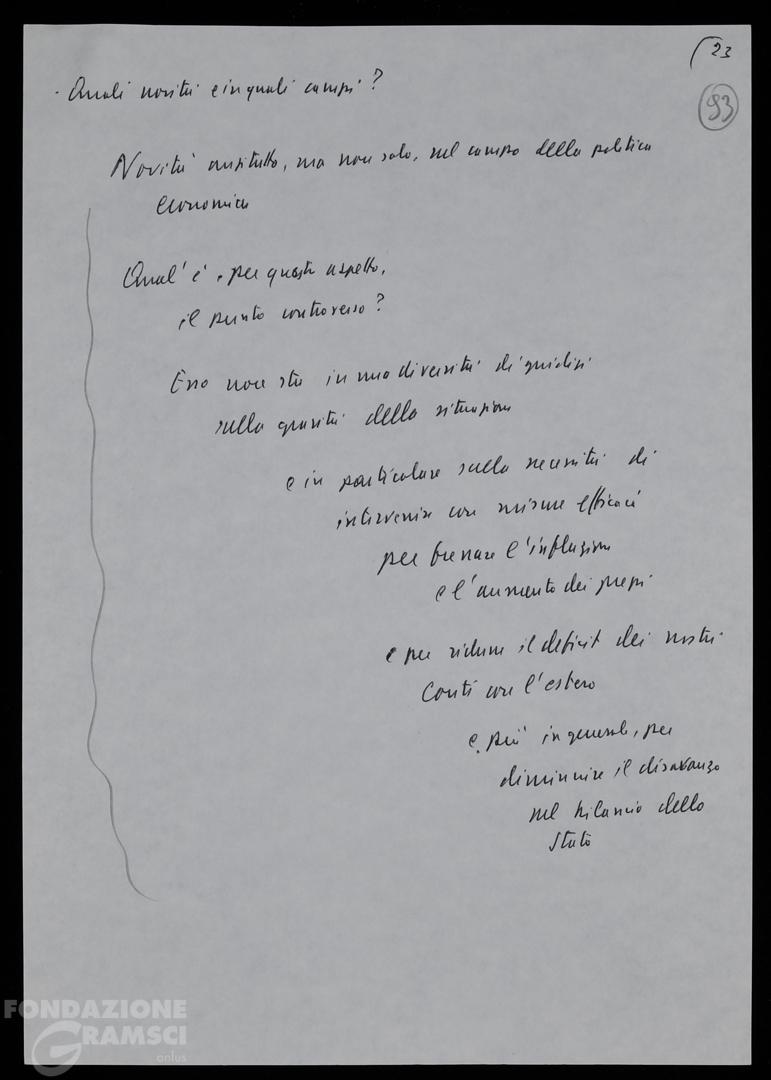 23
93
· Quali novità e in quali campi?
Novità anzitutto, ma non solo, nel campo della politica
economica
Qual'è, per questo aspetto,
il punto controverso?
Esso non sta in una diversità di giudizi
sulla gravità della situazione
e in particolare sulla necessità di
intervenire con misure efficaci
per frenare l'inflazione
e l'aumento dei prezzi
e per ridurre il deficit dei nostri
conti con l'estero
e, più in generale, per
diminuire il disavanzo
nel bilancio dello
Stato
FONDAZIONE
GRAMSCI
onlus